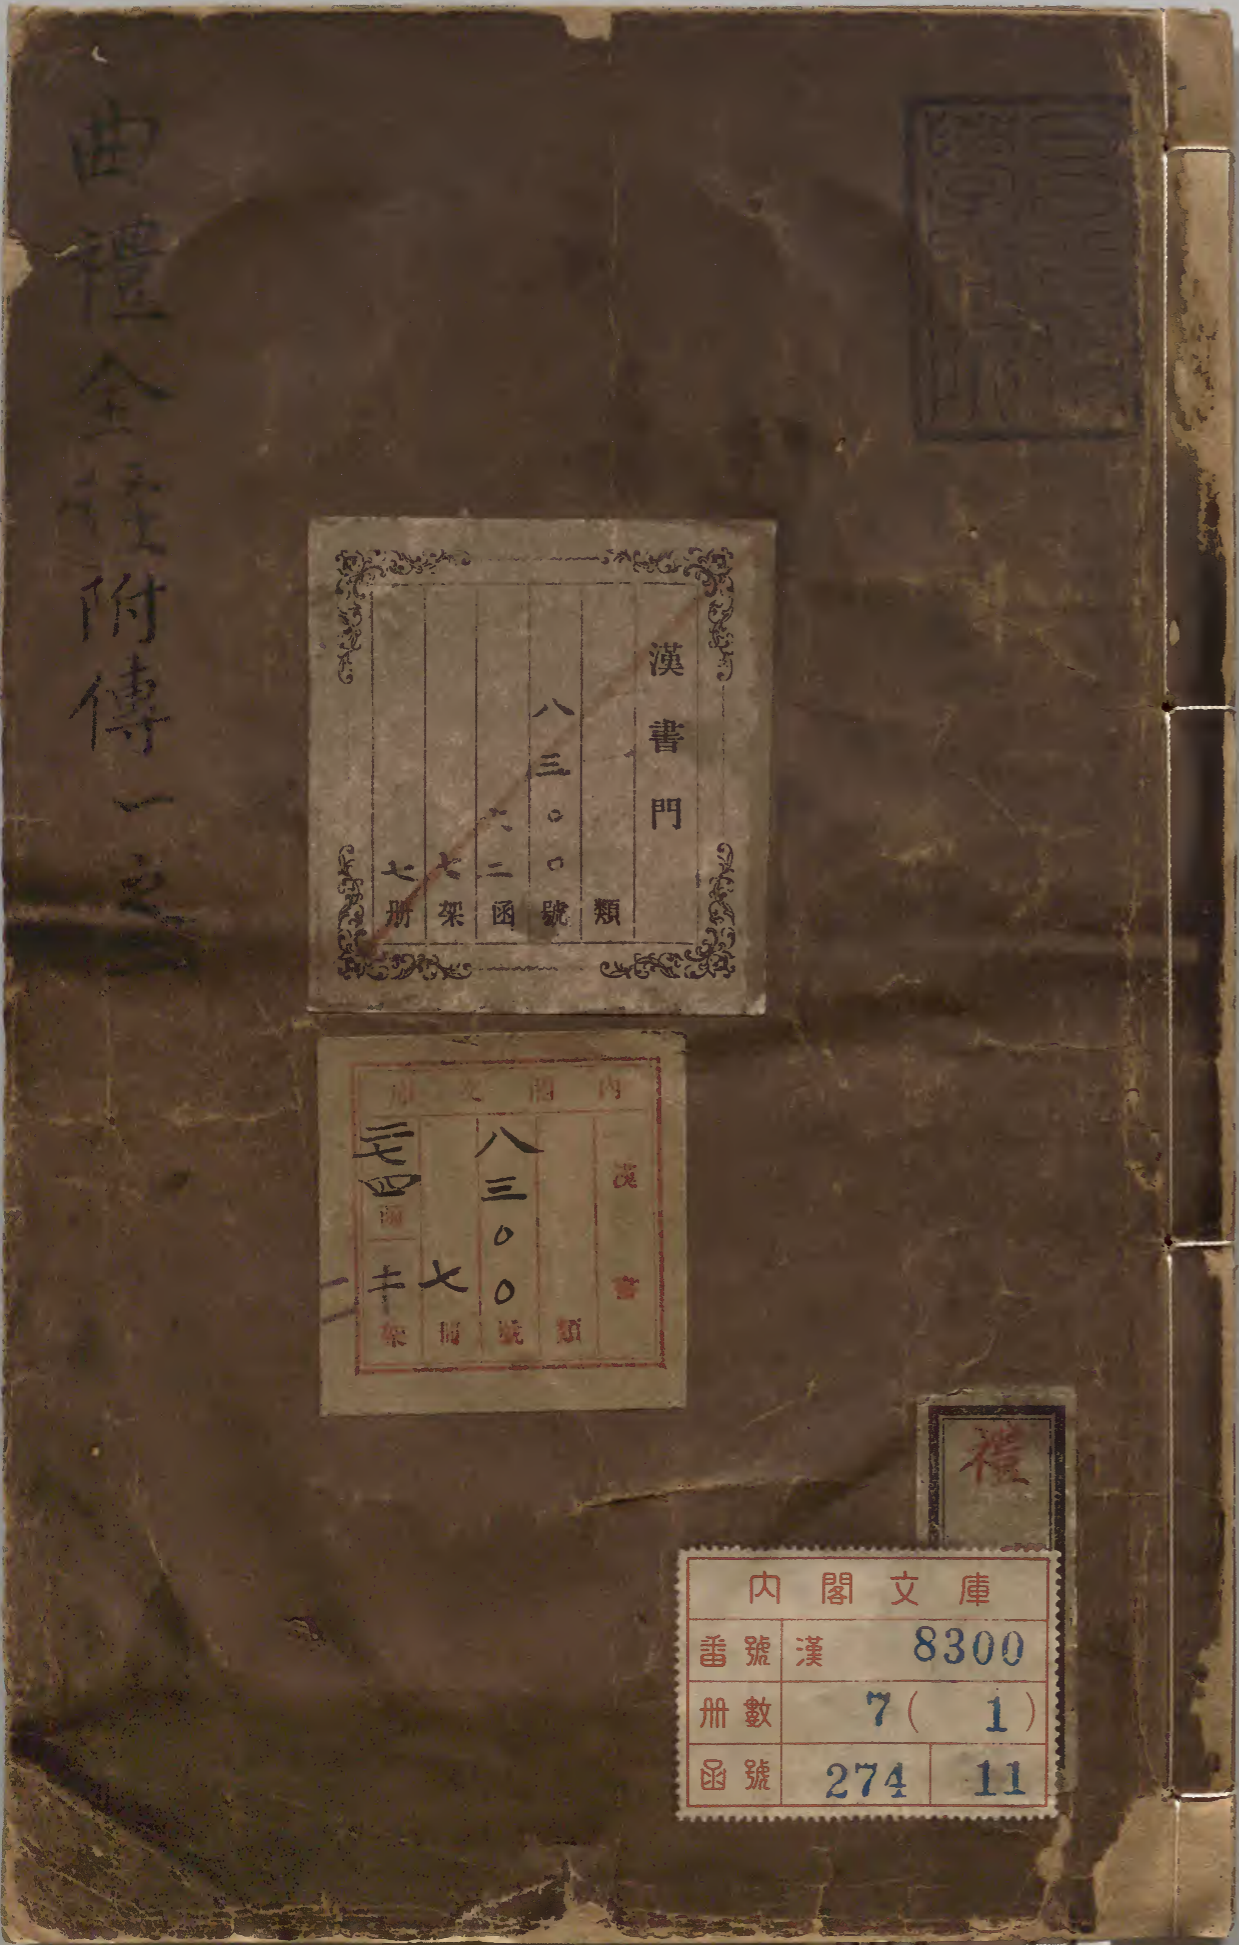 曲禮全經附傳一之
漢書門
類
八三〇〇號
六二函
七架
七册
内閣文庫
漢書
類
八三〇〇號
七冊
二七四函
架
禮
内閣文庫
番號 漢 8300
册數 7 ( 1 )
函號 274 11